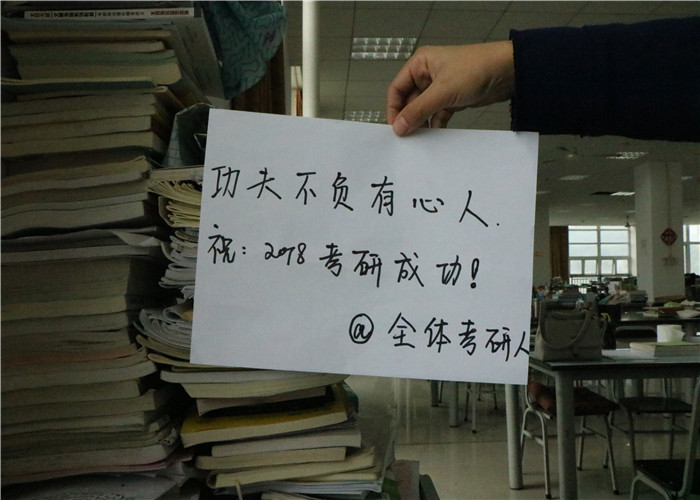 功夫不负有心人.
祝：2018考研成功！
@全体考研人